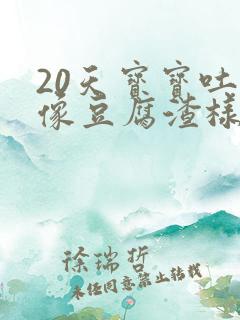 20天宝宝吐
像豆腐渣样
徐瑞哲
未经同意禁止转载